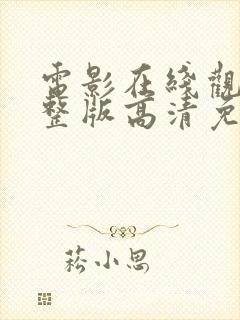 電影在綫觀
整版高清免
菘小思